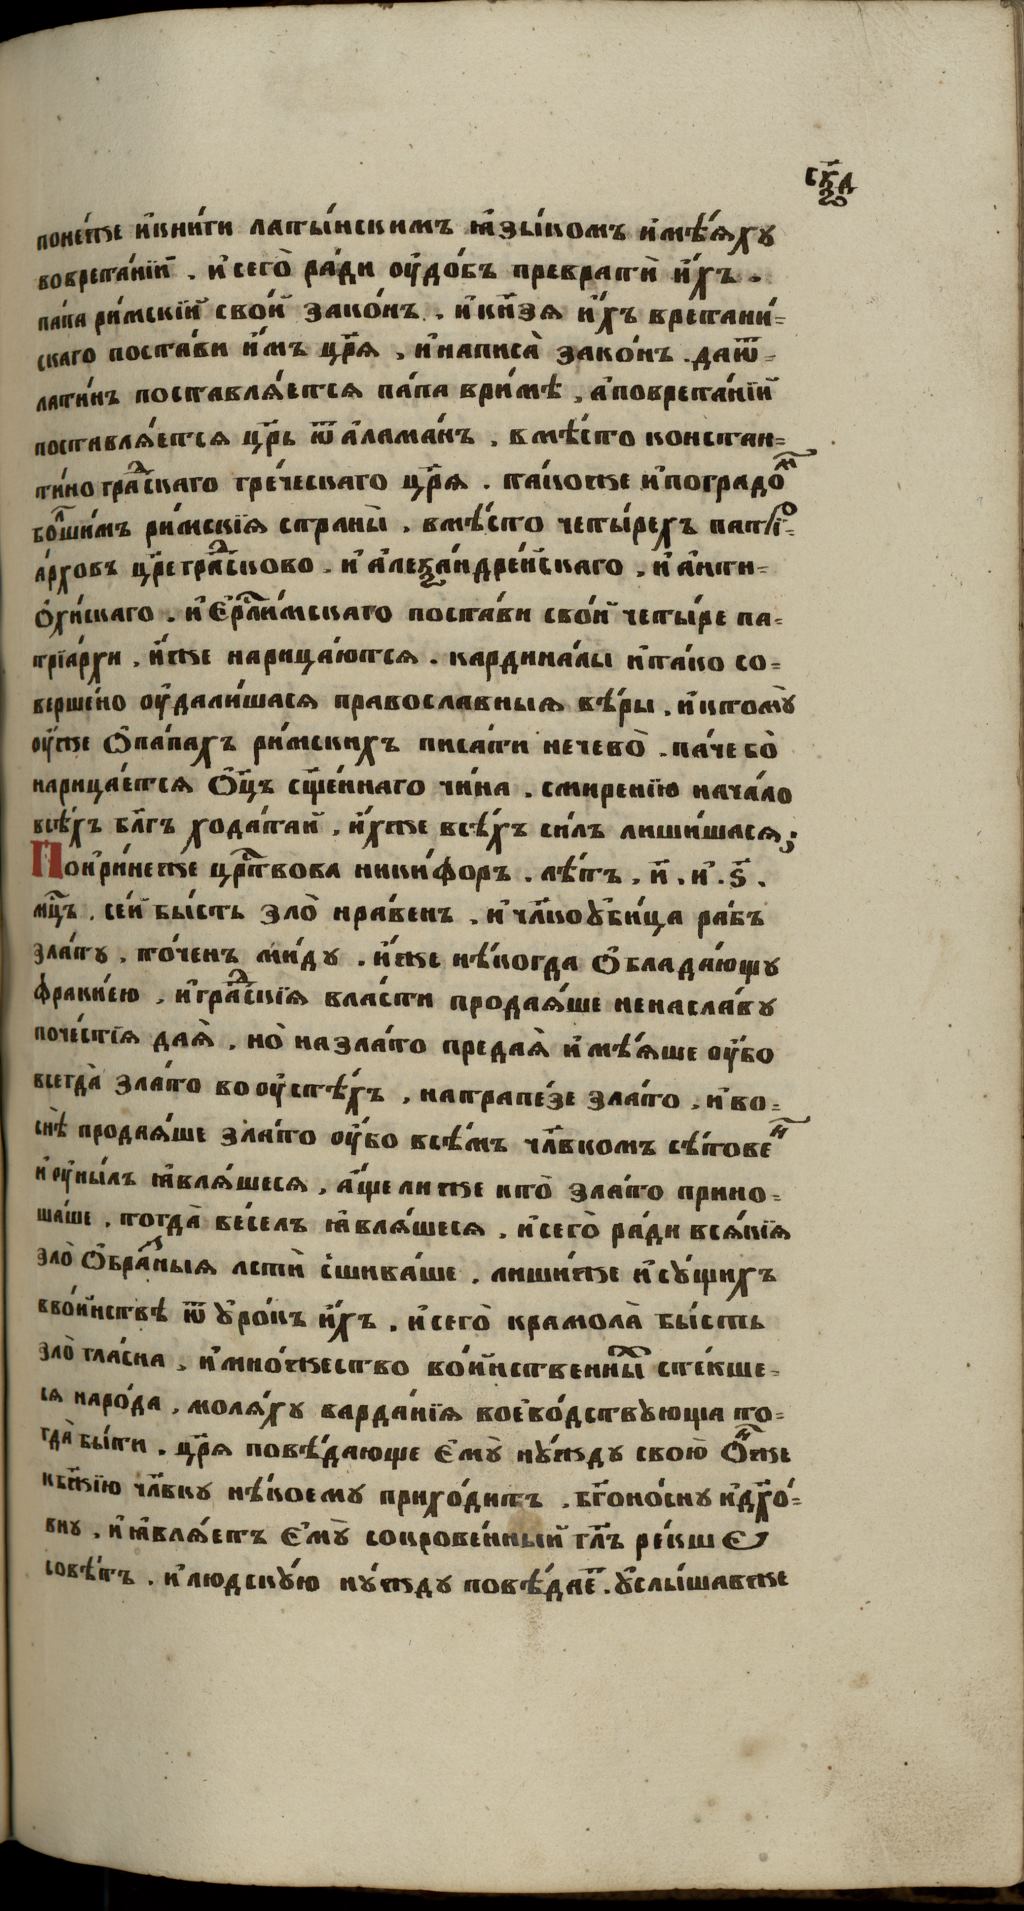 ск҃д
поне́же и҆кни́ги латы́нскимъ ꙗ҆зы́комъ и҆мѣ́ѧхꙋ
вовретані́и . и҆сего̀ ра́ди оу҆до́бь превратѝ и҆́хъ .
па́па ри́мскїй сво́й зако́нъ . и҆кн҃зѧ и҆́хъ вретани́-
скаго поста́ви и҆́мъ цр҃ѧ , и҆написа̀ зако́нъ . даѿ-
лати́нъ поставлѧ́етсѧ па́па ври́мѣ , а҆повретані́й
поставлѧ́етсѧ цр҃ь ѿ а҆лама́нъ , вмѣ́сто констан-
ти́ногра́дскаго гре́ческаго цр҃ѧ . та́коже и҆погрadóм
бо́лшимъ ри́мскїѧ страны̀ , вмѣ́сто четы́рехъ патрїѡ-
а́рховъ цр҃егра́дсково . и҆ а҆леѯандре́йскаго , и҆ а҆нти-
ѻ҆хи́скаго . и҆ є҆рл҃и́мскаго поста́ви свои́ четы́ре па-
трїа́рхи , и҆́же нарица́ютсѧ . кардина́лы и҆та́ко со-
верше́но оу҆дали́шасѧ правосла́вныѧ вѣ́ры . и҆ктомꙋ̀
оу҆же ѻ҆па́пахъ ри́мскихъ писа́ти нечево̀ . па́че бо̀
нарица́етсѧ ѻ҆ц҃ъ сщ҃е́ннаго чи́на . смире́нїю нача́ло
всѣ́хъ бл҃гъ хода́тай , и҆́хже всѣ́хъ си́лъ лиши́шасѧ ;
Пои҆ри́не же црⷭ҇твова ники́форъ . лѣ́тъ , и҃ . и҆ . ѕ҃ .
мцⷭ҇ъ . се́й бы́сть зло̀ нра́венъ , и҆ чл҃коꙋби́ца ра́бъ
зла́тꙋ , то́ченъ ми́дꙋ . и҆́же нѣ́когда ѻ҆блада́ющꙋ
фраки́ею , и҆гра́дскїѧ вла́сти продаѧ́ше ненасла́вꙋ
поче́стїѧ даѧ̀ , но̀ назла́то предаѧ̀ и҆мѣ́ѧше оу҆́бо
всегда̀ зла́то во оу҆стѣ́хъ , натрапе́зе зла́то , и҆во-
снѣ̀ продаѧ́ше зла́то оу҆́бо всѣ́мъ чл҃вкомъ сѣ́товен
и҆оу҆ны́лъ ꙗ҆влѧ́шесѧ , а҆́щели же кто̀ зла́то прино-
ша́ше , тогда̀ ве́селъ ꙗ҆влѧ́шесѧ , и҆сего̀ ра́ди всѧ́кїѧ
зло̀ ѻ҆бра́зныѧ лстѝ сшива́ше , лиши́же и҆сꙋ́щихъ
вво́инствѣ ѿ ꙋ҆ро́къ и҆́хъ . и҆сего̀ крамола̀ бы́сть
зло̀ гла́сна , и҆мно́жество во́инственныⷯ сте́кше-
сѧ наро́да , молѧ́хꙋ варда́нїѧ воево́дствꙋюща то-
гда̀ бы́ти . цр҃ѧ повѣ́дающе є҆мꙋ̀ нꙋ́ждꙋ свою̀ ѻ҆́нже
кбж҃їю чл҃вкꙋ нѣ́коемꙋ прихо́дитъ . бг҃оно́снꙋ и҆дх҃о́-
внꙋ , и҆ꙗ҆влѧ́етъ є҆мꙋ̀ сокрове́нный гл҃ъ ре́кше
совѣ́тъ . и҆людскꙋ́ю нꙋ́ждꙋ повѣ́даеⷮ . ꙋ҆слы́шавже